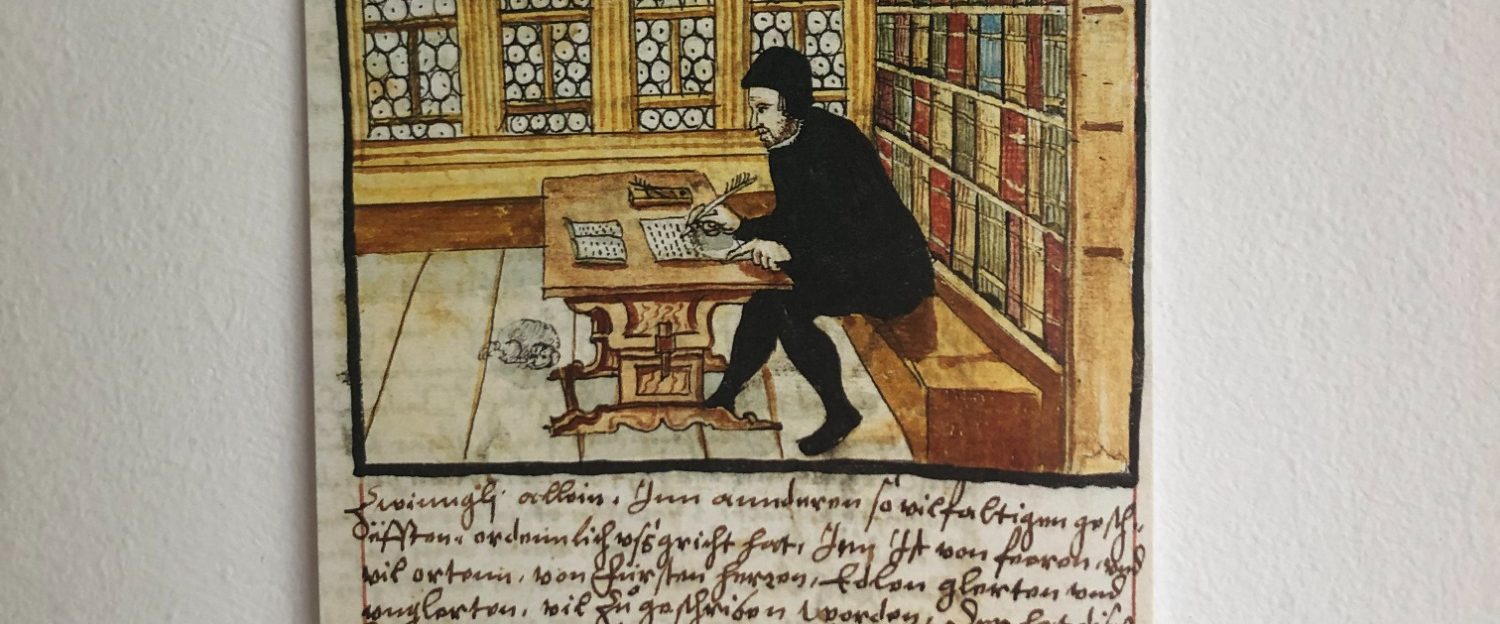 Zwinngli allein. Inn annderen so vilfaltigen gesch¬
äfften. ordennlich ussgricht hat. Imm Ist von feeren. und
vil ortenn. von Fürsten herren. Edlen glerten und
unglerten. vil zů geschriben worden.